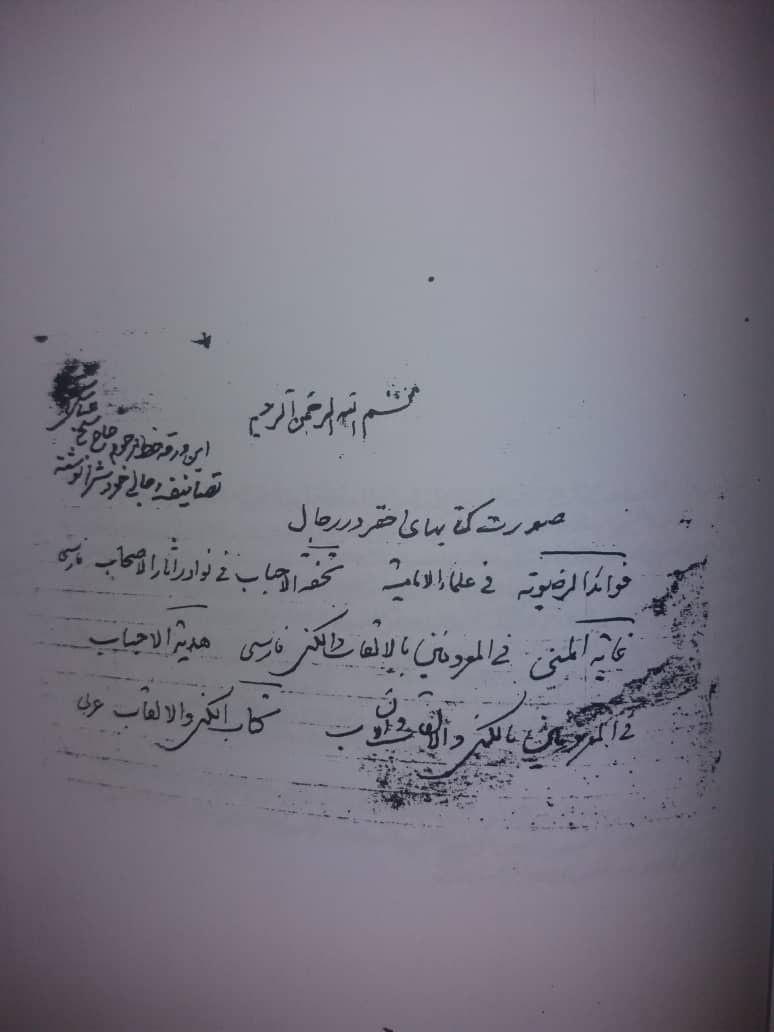 بسم الله الرحمن الرحیم
این ورقه خط مرحوم حاج شیخ عباس
تصانیف رجالی خودش را نوشته
صورت کتابهای احقر در رجال
فوائد الرضویه فی علماء الامامیه تحفه الاحباب فی نوادر آثار الاصحاب فارسی
غایه المنی فی المعروفین بالالقاب والکنی فارسی هدیه الاحباب
فی المعروفین بالکنی والالقاب والانساب کتاب الکنی والالقاب عربی